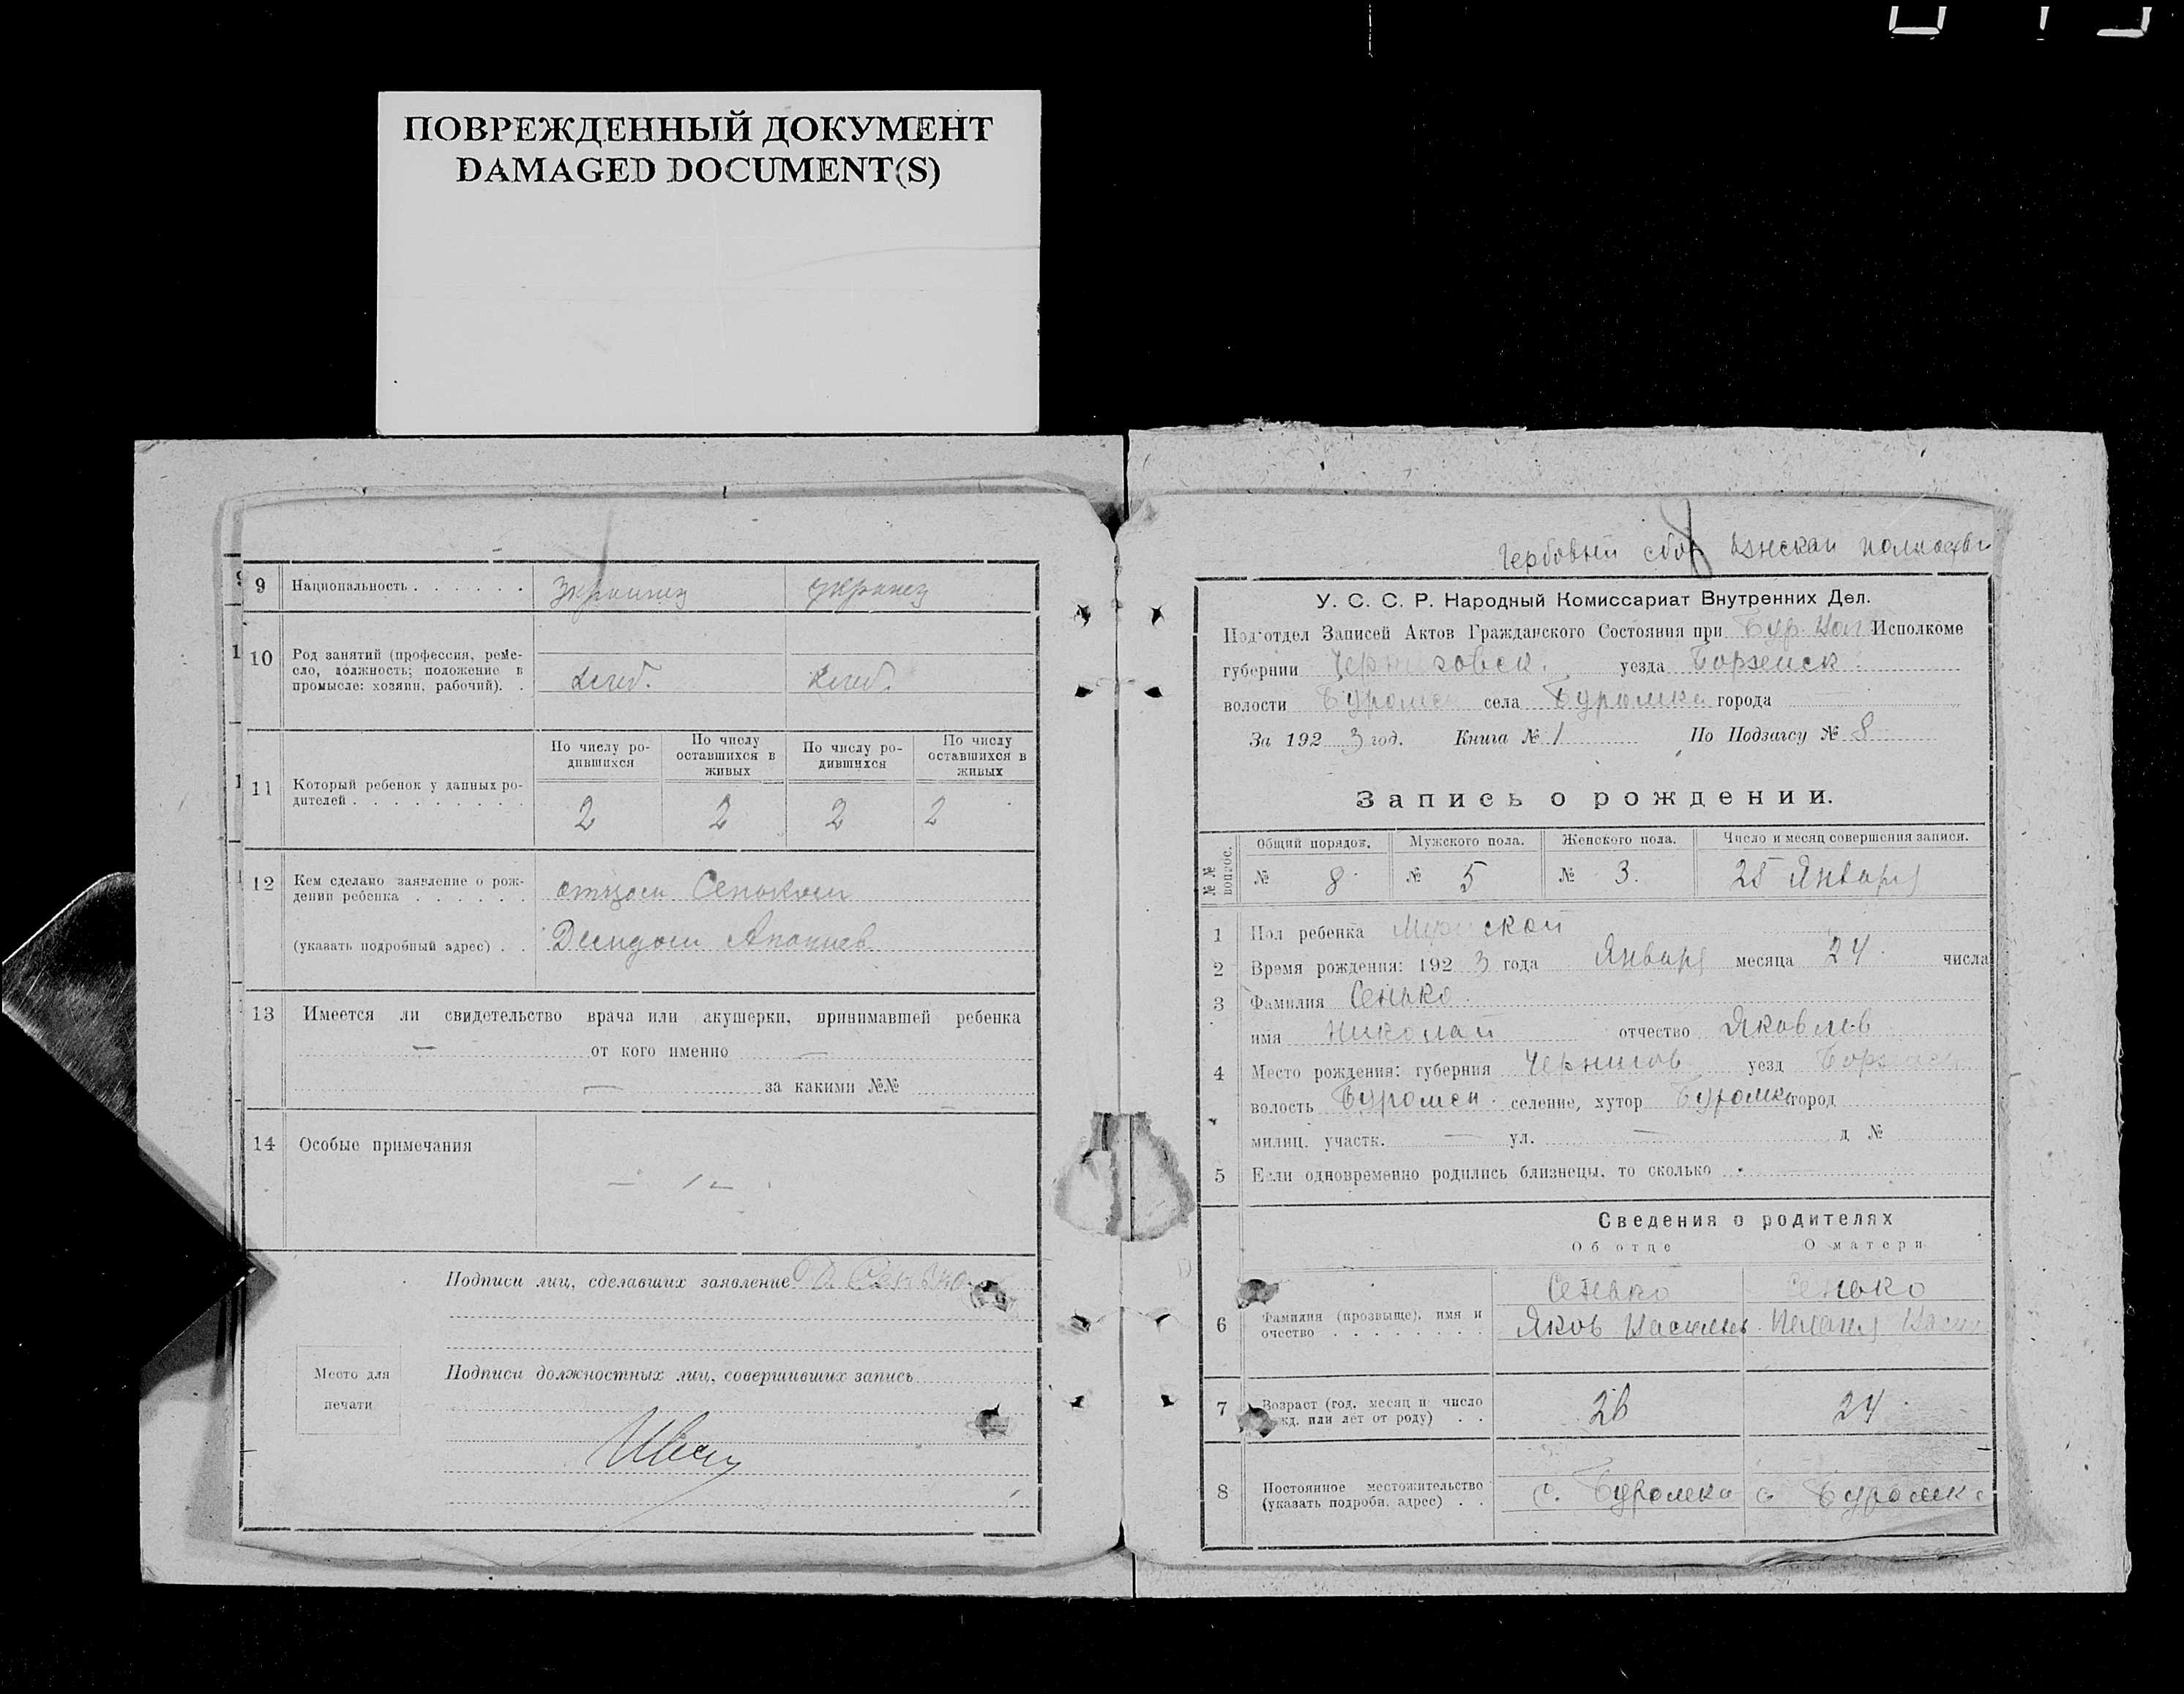 ПОВРЕЖДЕННЫЙ ДОКУМЕНТ
DAMAGED DOCUMENT(S)
9 Национальность . . . . . . украинец украинец
10 Род занятий (профессия, реме-
сло, должность; положение в
промысле: хозяин, рабочий). . хлеб. хлеб.
По числу ро-
дившихся
По числу
оставшихся в
живых
По числу ро-
дившихся
По числу
оставшихся в
живых
11 Который ребенок у данных ро-
дителей . . . . . . . . . 2 2 2 2
12 Кем сделано заявление о рож-
дении ребенка . . . . . . отцом Сеньком
(указать подробный адрес) . . Демидом
13 Имеется ли свидетельство врача или акушерки, принимавшей ребенка
— от кого именно —
— за какими №№
14 Особые примечания
Подписи лиц, сделавших заявление
Место для
печати
Подписи должностных лиц, совершивших запись
Гербовый сбор взыскан полностью
У. С. С. Р. Народный Комиссариат Внутренних Дел.
Под'отдел Записей Актов Гражданского Состояния при Бур. Вол. Исполкоме
губернии Черниговск. уезда Борзенск.
волости Буромск села Буромка города
За 1923 год. Книга № 1 По Подзагсу № 8
Запись о рождении.
№№ вопрос.
Общий порядок. Мужского пола. Женского пола. Число и месяц совершения записи.
№ 8. № 5 № 3. 25 Января
1 Пол ребенка Мужской
2 Время рождения: 1923 года Января месяца 24 числа
3 Фамилия Сенько.
имя Николай отчество Яковлев
4 Место рождения: губерния Чернигов уезд Борзенск
волость Буромск. селение, хутор Буромка город
милиц. участк. — ул. — д №
5 Если одновременно родились близнецы, то сколько
Сведения о родителях
Об отце О матери
Сенько Сенько
6 Фамилия (прозвище), имя и
очество . . . . . . . . Яков Васильев
7 Возраст (год, месяц и число
рожд. или лет от роду) . . 26 24
8 Постоянное местожительство
(указать подробн. адрес) . . с. Буромка с Буромка